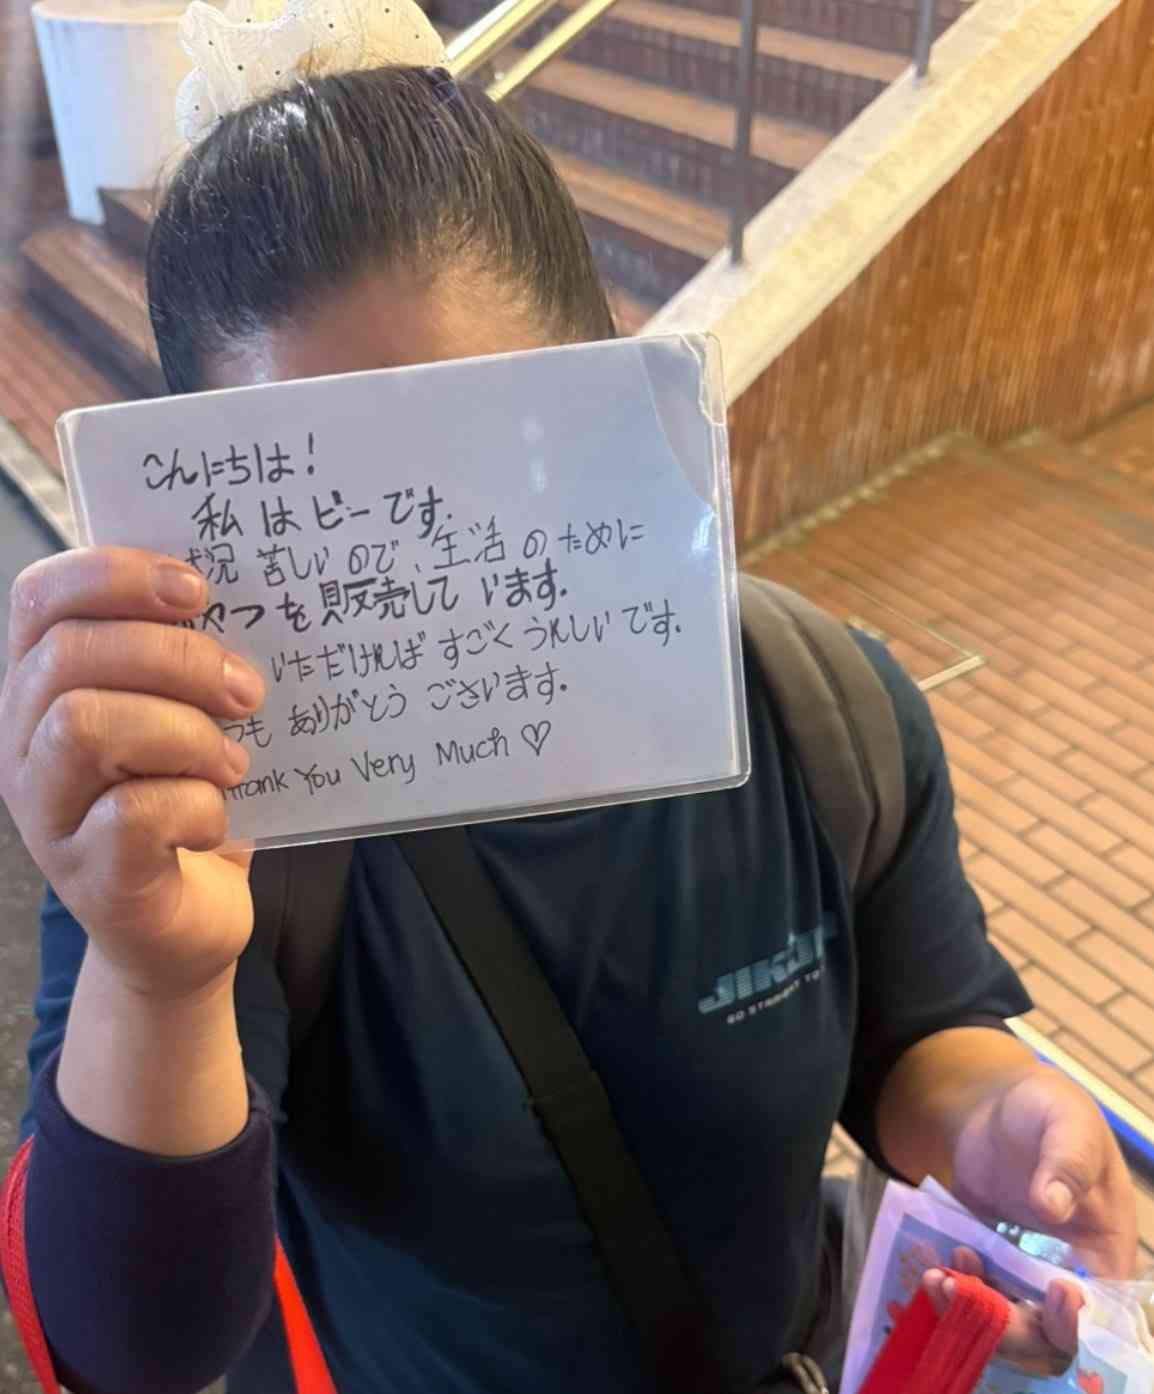 こんにちは!
私はビーです.
状況 苦しいので、生活のために
おやつを販売しています.
いただければ すごくうれしいです.
つも ありがとう ございます.
Thank You Very Much ♡
GO STRAIGHT TO